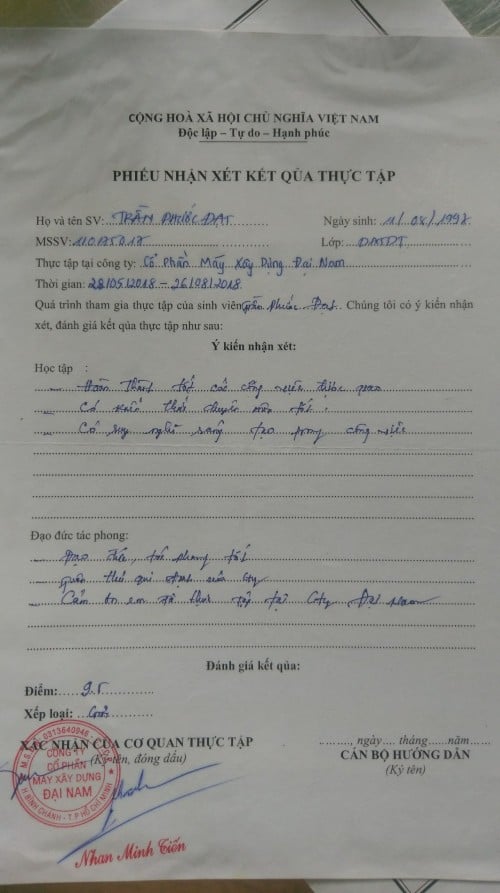 CỘNG HOÀ XÃ HỘI CHỦ NGHĨA VIỆT NAM
Độc lập – Tự do – Hạnh phúc
PHIẾU NHẬN XÉT KẾT QỦA THỰC TẬP
Họ và tên SV: TRẦN PHƯỚC ĐẠT Ngày sinh: 11/08/1997
MSSV: Lớp:
Thực tập tại công ty: Cổ Phần Máy Xây Dựng Đại Nam
Thời gian: 28/05/2018 – 26/08/2018
Quá trình tham gia thực tập của sinh viên Trần Phước Đạt. Chúng tôi có ý kiến nhận
xét, đánh giá kết qủa thực tập như sau:
Ý kiến nhận xét:
Học tập :
– Hoàn thành tốt các công việc được giao
– Có kiến thức chuyên môn tốt.
– Có suy nghĩ sáng tạo trong công việc
Đạo đức tác phong:
– Đạo đức, tác phong tốt
– Tuân thủ qui định của Cty
– Cảm ơn em đã thực tập tại Cty Đại Nam
Đánh giá kết qủa:
Điểm: 9.5
Xếp loại: Giỏi
XÁC NHẬN CỦA CƠ QUAN THỰC TẬP
(Ký tên, đóng dấu)
............, ngày.... tháng......năm......
CÁN BỘ HƯỚNG DẪN
(Ký tên)
CÔNG TY
CỔ PHẦN
MÁY XÂY DỰNG
ĐẠI NAM
H.BÌNH CHÁNH - T.P HỒ CHÍ MINH
Nhan Minh Tiến